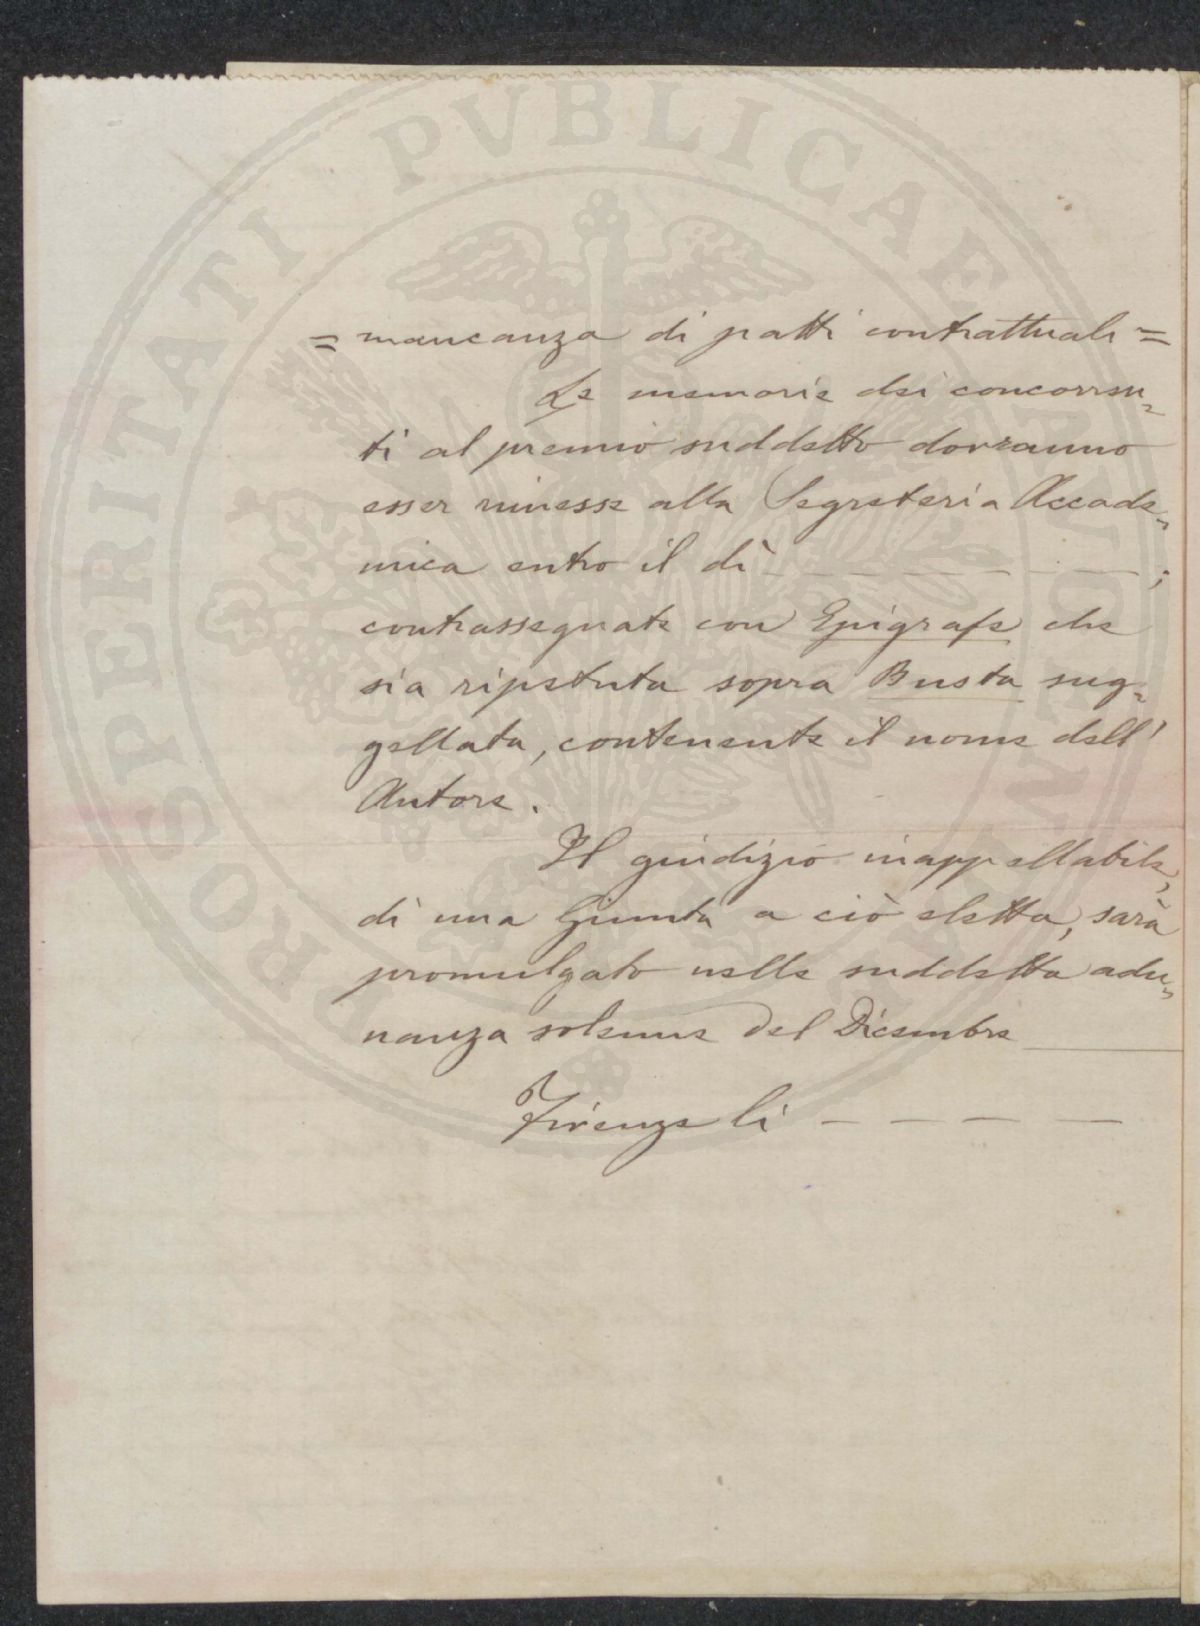 PROSPERITATI PVBLICAE
= mancanza di patti contrattuali =
Le memorie dei concorren=
ti al premio suddetto dovranno
esser rimesse alla Segreteria Accade=
mica entro il dì _ _ _ _ _ _ _ ;
contrassegnate con Epigrafe che
sia ripetuta sopra Busta sug=
gellata, contenente il nome dell'
Autore.
Il giudizio inappellabile,
di una Giunta a ciò eletta, sarà
promulgato nelle suddetta adu=
nanza solenne del Dicembre ______
Firenze li _ _ _ _